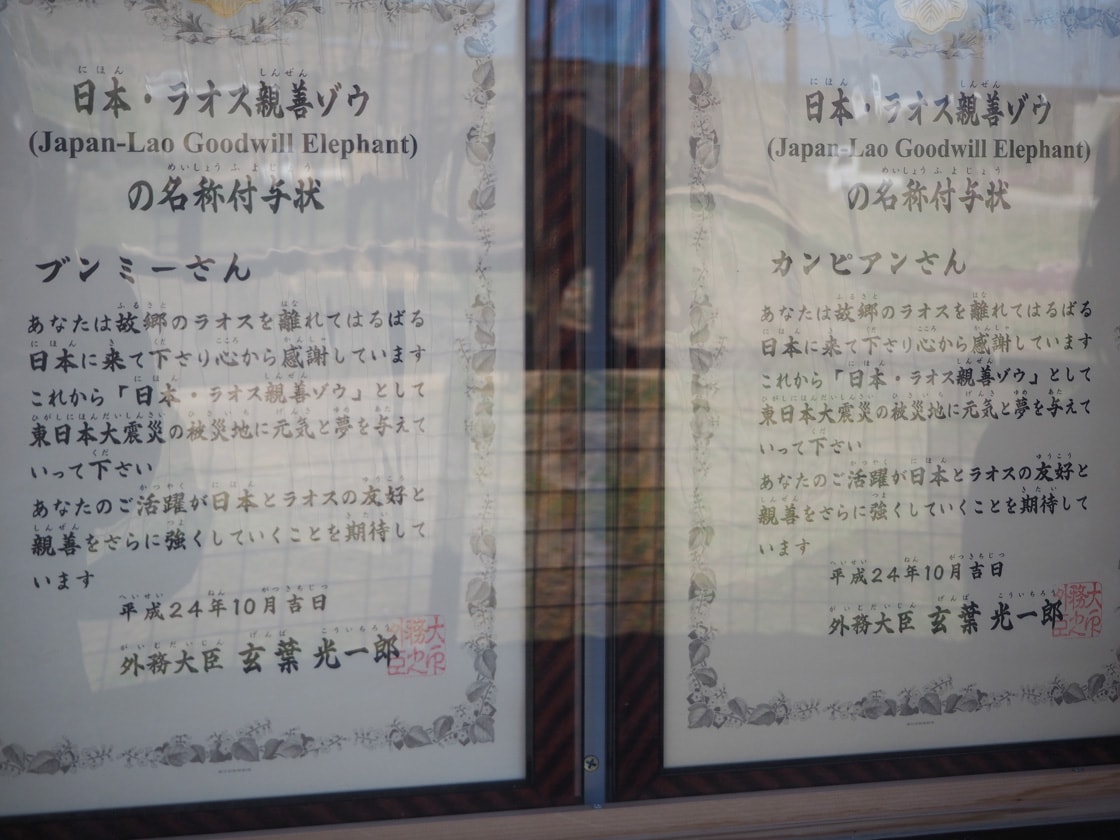 日本・ラオス親善ゾウ
(Japan-Lao Goodwill Elephant)
の名称付与状
ブンミーさん
あなたは故郷のラオスを離れてはるばる
日本に来て下さり心から感謝しています
これから「日本・ラオス親善ゾウ」として
東日本大震災の被災地に元気と夢を与えて
いって下さい
あなたのご活躍が日本とラオスの友好と
親善をさらに強くしていくことを期待して
います
平成24年10月吉日
外務大臣 玄葉 光一郎
日本・ラオス親善ゾウ
(Japan-Lao Goodwill Elephant)
の名称付与状
カンピアンさん
あなたは故郷のラオスを離れてはるばる
日本に来て下さり心から感謝しています
これから「日本・ラオス親善ゾウ」として
東日本大震災の被災地に元気と夢を与えて
いって下さい
あなたのご活躍が日本とラオスの友好と
親善をさらに強くしていくことを期待して
います
平成24年10月吉日
外務大臣 玄葉 光一郎